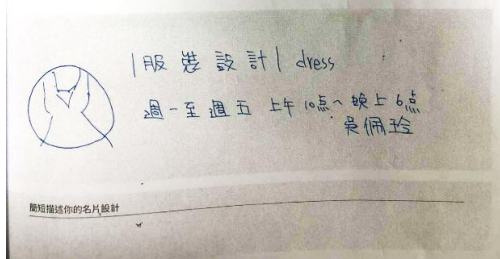 |服裝設計| dress
週一至週五 上午10点~晚上6点
吳佩玲
簡短描述你的名片設計